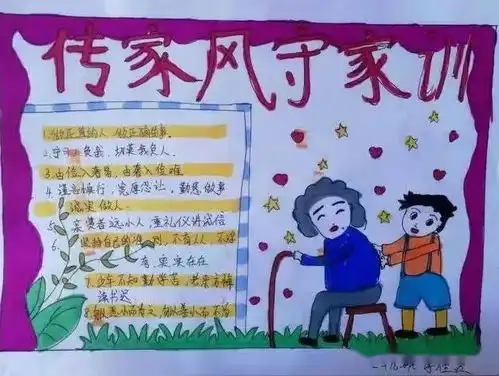 传家风守家训
1.做正直的人,做正确的事。
2.宁可人负我,切莫我负人。
3.由俭入奢易,由奢入俭难。
4.谨言慎行,宽厚忍让,勤恳做事
诚实做人。
5、亲贤者远小人,重礼仪讲诚信
6、坚持自己的 则,不育从,不
夸,要实在在
7、少年不知勤学苦,老来方悔
读书迟
8、勿以恶小而为之,勿以善小而不为